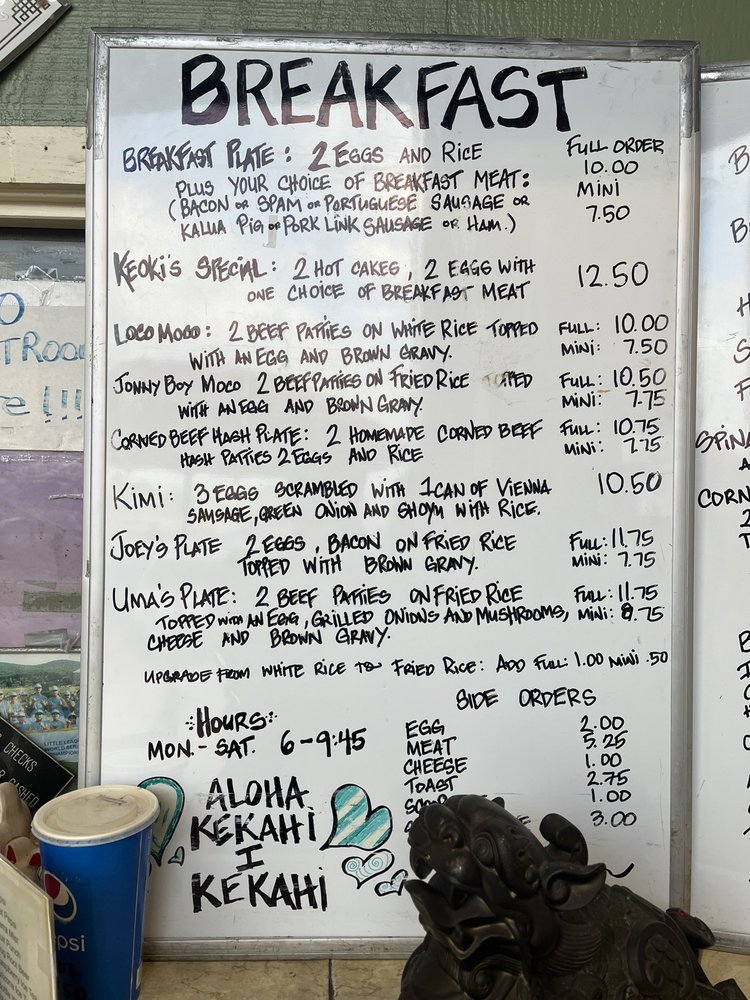 BREAKFAST
BREAKFAST PLATE: 2 EGGS AND RICE FULL ORDER
10.00
PLUS YOUR CHOICE OF BREAKFAST MEAT: MINI
(BACON OR SPAM OR PORTUGUESE SAUSAGE OR 7.50
KALUA PIG OR PORK LINK SAUSAGE OR HAM.)
KEOKI'S SPECIAL: 2 HOT CAKES, 2 EGGS WITH 12.50
ONE CHOICE OF BREAKFAST MEAT
LOCO MOCO: 2 BEEF PATTIES ON WHITE RICE TOPPED FULL: 10.00
WITH AN EGG AND BROWN GRAVY. MINI: 7.50
JONNY BOY MOCO 2 BEEF PATTIES ON FRIED RICE FULL: 10.50
WITH AN EGG AND BROWN GRAVY. MINI: 7.75
CORNED BEEF HASH PLATE: 2 HOMEMADE CORNED BEEF FULL: 10.75
HASH PATTIES 2 EGGS AND RICE MINI: 7.75
KIMI: 3 EGGS SCRAMBLED WITH 1 CAN OF VIENNA 10.50
SAUSAGE, GREEN ONION AND SHOYU WITH RICE.
JOEY'S PLATE 2 EGGS, BACON ON FRIED RICE FULL: 11.75
TOPPED WITH BROWN GRAVY. MINI: 7.75
UMA'S PLATE: 2 BEEF PATTIES ON FRIED RICE FULL: 11.75
TOPPED WITH AN EGG, GRILLED ONIONS AND MUSHROOMS, MINI: 8.75
CHEESE AND BROWN GRAVY.
UPGRADE FROM WHITE RICE TO FRIED RICE: ADD FULL: 1.00 MINI .50
SIDE ORDERS
EGG 2.00
MEAT 5.25
CHEESE 1.00
TOAST 2.75
1.00
3.00
HOURS:
MON.-SAT. 6-9:45
ALOHA
KEKAHI
I
KEKAHI
LITTLE LEAGUE
WORLD SERIES
CHECKS
CASHED
psi
SPINA
CORN